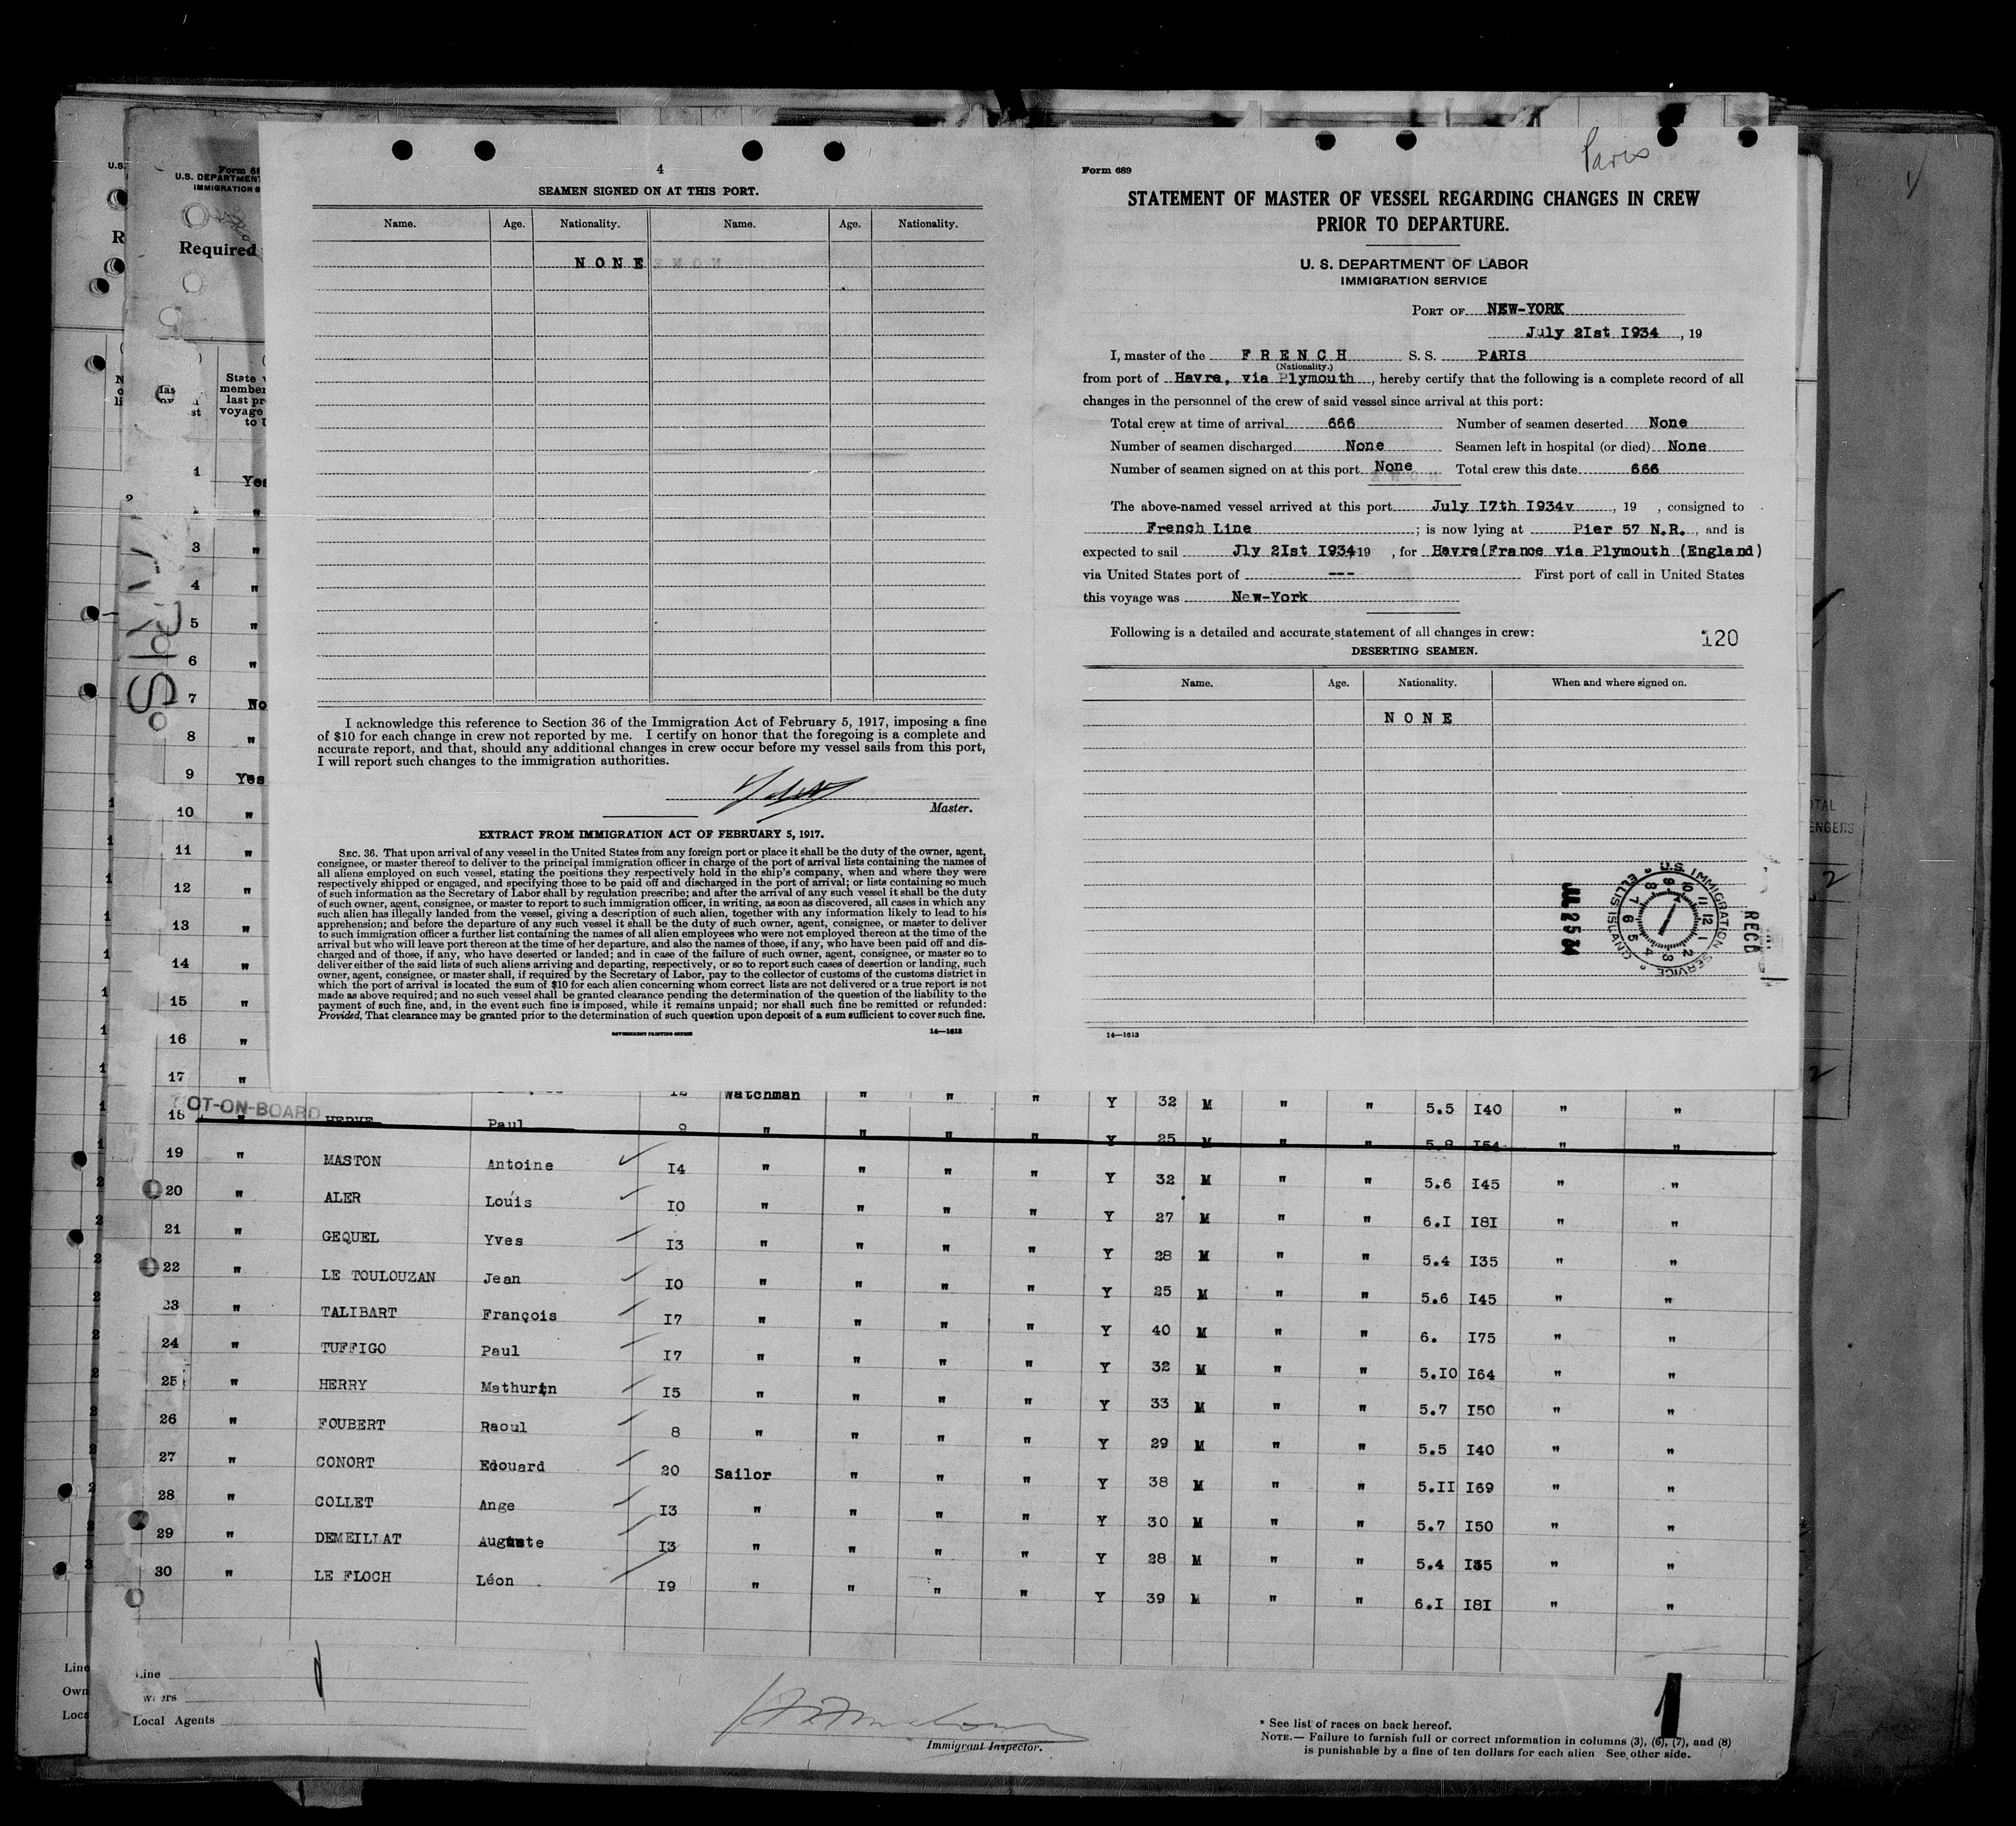 4
SEAMEN SIGNED ON AT THIS PORT.
Name. Age. Nationality. Name. Age. Nationality.
NONE
I acknowledge this reference to Section 36 of the Immigration Act of February 5, 1917, imposing a fine
of $10 for each change in crew not reported by me. I certify on honor that the foregoing is a complete and
accurate report, and that, should any additional changes in crew occur before my vessel sails from this port,
I will report such changes to the immigration authorities.
Master.
EXTRACT FROM IMMIGRATION ACT OF FEBRUARY 5, 1917.
SEC. 36. That upon arrival of any vessel in the United States from any foreign port or place it shall be the duty of the owner, agent,
consignee, or master thereof to deliver to the principal immigration officer in charge of the port of arrival lists containing the names of
all aliens employed on such vessel, stating the positions they respectively hold in the ship's company, when and where they were
respectively shipped or engaged, and specifying those to be paid off and discharged in the port of arrival; or lists containing so much
of such information as the Secretary of Labor shall by regulation prescribe; and after the arrival of any such vessel it shall be the duty
of such owner, agent, consignee, or master to report to such immigration officer, in writing, as soon as discovered, all cases in which any
such alien has illegally landed from the vessel, giving a description of such alien, together with any information likely to lead to his
apprehension; and before the departure of any such vessel it shall be the duty of such owner, agent, consignee, or master to deliver
to such immigration officer a further list containing the names of all alien employees who were not employed thereon at the time of the
arrival but who will leave port thereon at the time of her departure, and also the names of those, if any, who have been paid off and dis-
charged and of those, if any, who have deserted or landed; and in case of the failure of such owner, agent, consignee, or master so to
deliver either of the said lists of such aliens arriving and departing, respectively, or so to report such cases of desertion or landing, such
owner, agent, consignee, or master shall, if required by the Secretary of Labor, pay to the collector of customs of the customs district in
which the port of arrival is located the sum of $10 for each alien concerning whom correct lists are not delivered or a true report is not
made as above required; and no such vessel shall be granted clearance pending the determination of the question of the liability to the
payment of such fine, and, in the event such fine is imposed, while it remains unpaid; nor shall such fine be remitted or refunded:
Provided, That clearance may be granted prior to the determination of such question upon deposit of a sum sufficient to cover such fine.
GOVERNMENT PRINTING OFFICE 14—1613
Paris
Form 689
STATEMENT OF MASTER OF VESSEL REGARDING CHANGES IN CREW
PRIOR TO DEPARTURE.
U. S. DEPARTMENT OF LABOR
IMMIGRATION SERVICE
PORT OF NEW-YORK
July 2Ist I934, 19
I, master of the FRENCH S. S. PARIS
(Nationality.)
from port of Havre, via Plymouth, hereby certify that the following is a complete record of all
changes in the personnel of the crew of said vessel since arrival at this port:
Total crew at time of arrival 666 Number of seamen deserted None
Number of seamen discharged None Seamen left in hospital (or died) None
Number of seamen signed on at this port None Total crew this date 666
The above-named vessel arrived at this port July I7th I934v, 19 , consigned to
French Line; is now lying at Pier 57 N.R., and is
expected to sail Jly 2Ist I934 19 , for Havre(France via Plymouth (England)
via United States port of --- First port of call in United States
this voyage was New-York
Following is a detailed and accurate statement of all changes in crew: 120
DESERTING SEAMEN.
Name. Age. Nationality. When and where signed on.
NONE
JUL 25 34
U.S. IMMIGRATION SERVICE ELLIS ISLAND
RECD
14—1613
U. S. DEPARTMENT
IMMIGRATION S
Required
State w
member
last pr
voyage
to U
1 Yes
2 "
3 "
4 "
5 "
6 "
7 No
8 "
9 Yes
10 "
11 "
12 "
13 "
14 "
15 "
16 "
17 " Watchman " " " Y 32 M " " 5.5 I40 " "
OT-ON-BOARD
18 " HERVE Paul 9 " " " " Y 25 M " " 5.8 I54 " "
19 " MASTON Antoine I4 " " " " Y 32 M " " 5.6 I45 " "
20 " ALER Louis I0 " " " " Y 27 M " " 6.I I8I " "
21 " GEQUEL Yves I3 " " " " Y 28 M " " 5.4 I35 " "
22 " LE TOULOUZAN Jean I0 " " " " Y 25 M " " 5.6 I45 " "
23 " TALIBART François I7 " " " " Y 40 M " " 6. I75 " "
24 " TUFFIGO Paul I7 " " " " Y 32 M " " 5.I0 I64 " "
25 " HERRY Mathurin I5 " " " " Y 33 M " " 5.7 I50 " "
26 " FOUBERT Raoul 8 " " " " Y 29 M " " 5.5 I40 " "
27 " CONORT Edouard 20 Sailor " " " Y 38 M " " 5.II I69 " "
28 " COLLET Ange I3 " " " " Y 30 M " " 5.7 I50 " "
29 " DEMEILLAT Auguste I3 " " " " Y 28 M " " 5.4 I35 " "
30 " LE FLOCH Léon I9 " " " " Y 39 M " " 6.I I8I " "
Line
Owners
Local Agents
Immigrant Inspector.
1
* See list of races on back hereof.
NOTE.— Failure to furnish full or correct information in columns (3), (6), (7), and (8)
is punishable by a fine of ten dollars for each alien See other side.